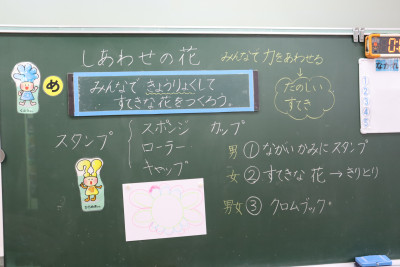 しあわせの花
みんなで力をあわせる
め
みんなで きょうりょくして
すてきな花をつくろう。
たのしい
すてき
スタンプ
スポンジ カップ
ローラー
キャップ
男 ① ながいかみにスタンプ
女 ② すてきな 花 → きりとり
男女 ③ クロムブック
1
2
3
4
5